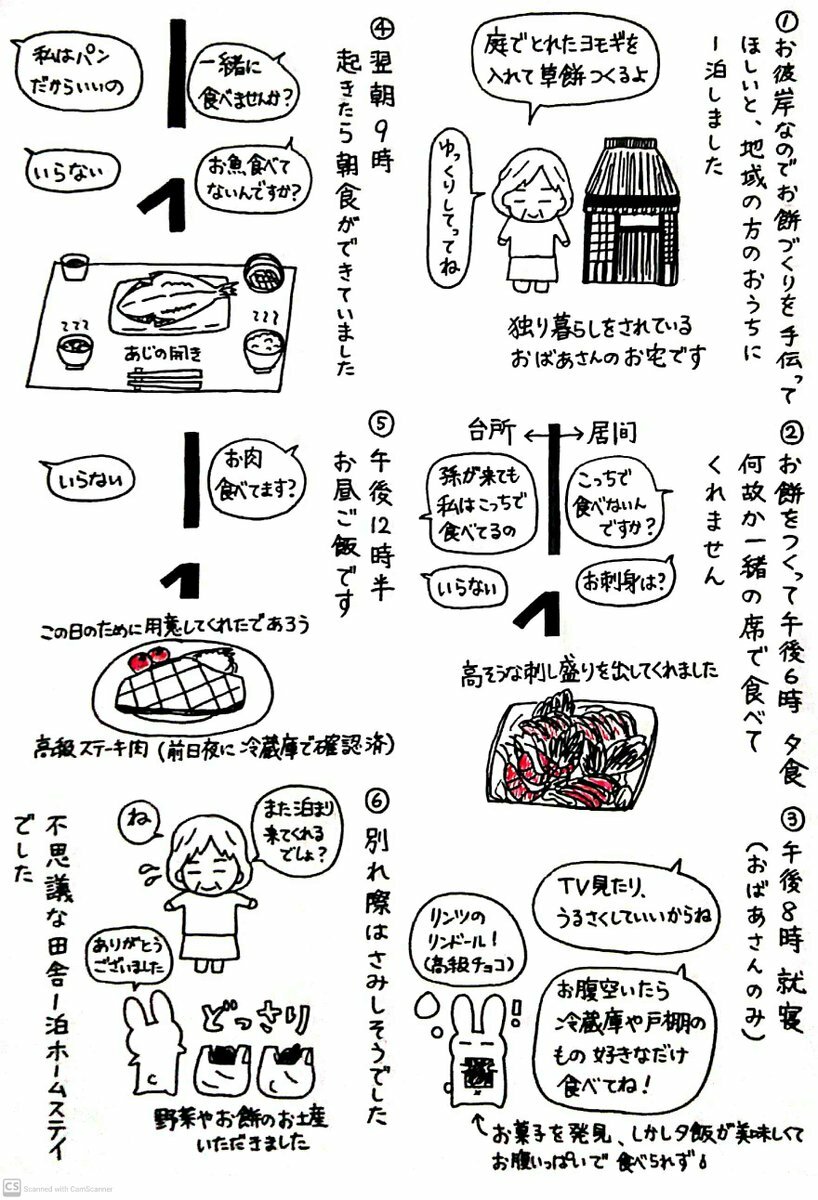 ①お彼岸なのでお餅づくりを手伝って
ほしいと、地域の方のおうちに
一泊しました
庭でとれたヨモギを
入れて草餅つくるよ
ゆっくりしてってね
独り暮らしをされている
おばあさんのお宅です
②お餅をつくって午後6時 夕食
何故か一緒の席で食べて
くれません
台所 ←→ 居間
こっちで
食べないん
ですか?
孫が来ても
私はこっちで
食べてるの
お刺身は?
いらない
高そうな刺し盛りを出してくれました
③午後8時 就寝
(おばあさんのみ)
TV見たり、
うるさくしていいからね
お腹空いたら
冷蔵庫や戸棚の
もの 好きなだけ
食べてね!
リンツの
リンドール!
(高級チョコ)
お菓子を発見、しかし夕飯が美味しくて
お腹いっぱいで 食べられず
④翌朝9時
起きたら朝食ができていました
一緒に
食べませんか?
私はパン
だからいいの
お魚食べて
ないんですか?
いらない
あじの開き
⑤午後12時半
お昼ご飯です
お肉
食べてます?
いらない
この日のために用意してくれたであろう
高級ステーキ肉(前日夜に冷蔵庫で確認済)
⑥別れ際はさみしそうでした
また泊まり
来てくれる
でしょ?
ね
ありがとう
ございました
どっさり
野菜やお餅のお土産
いただきました
不思議な田舎1泊ホームステイ
でした
CS Scanned with CamScanner